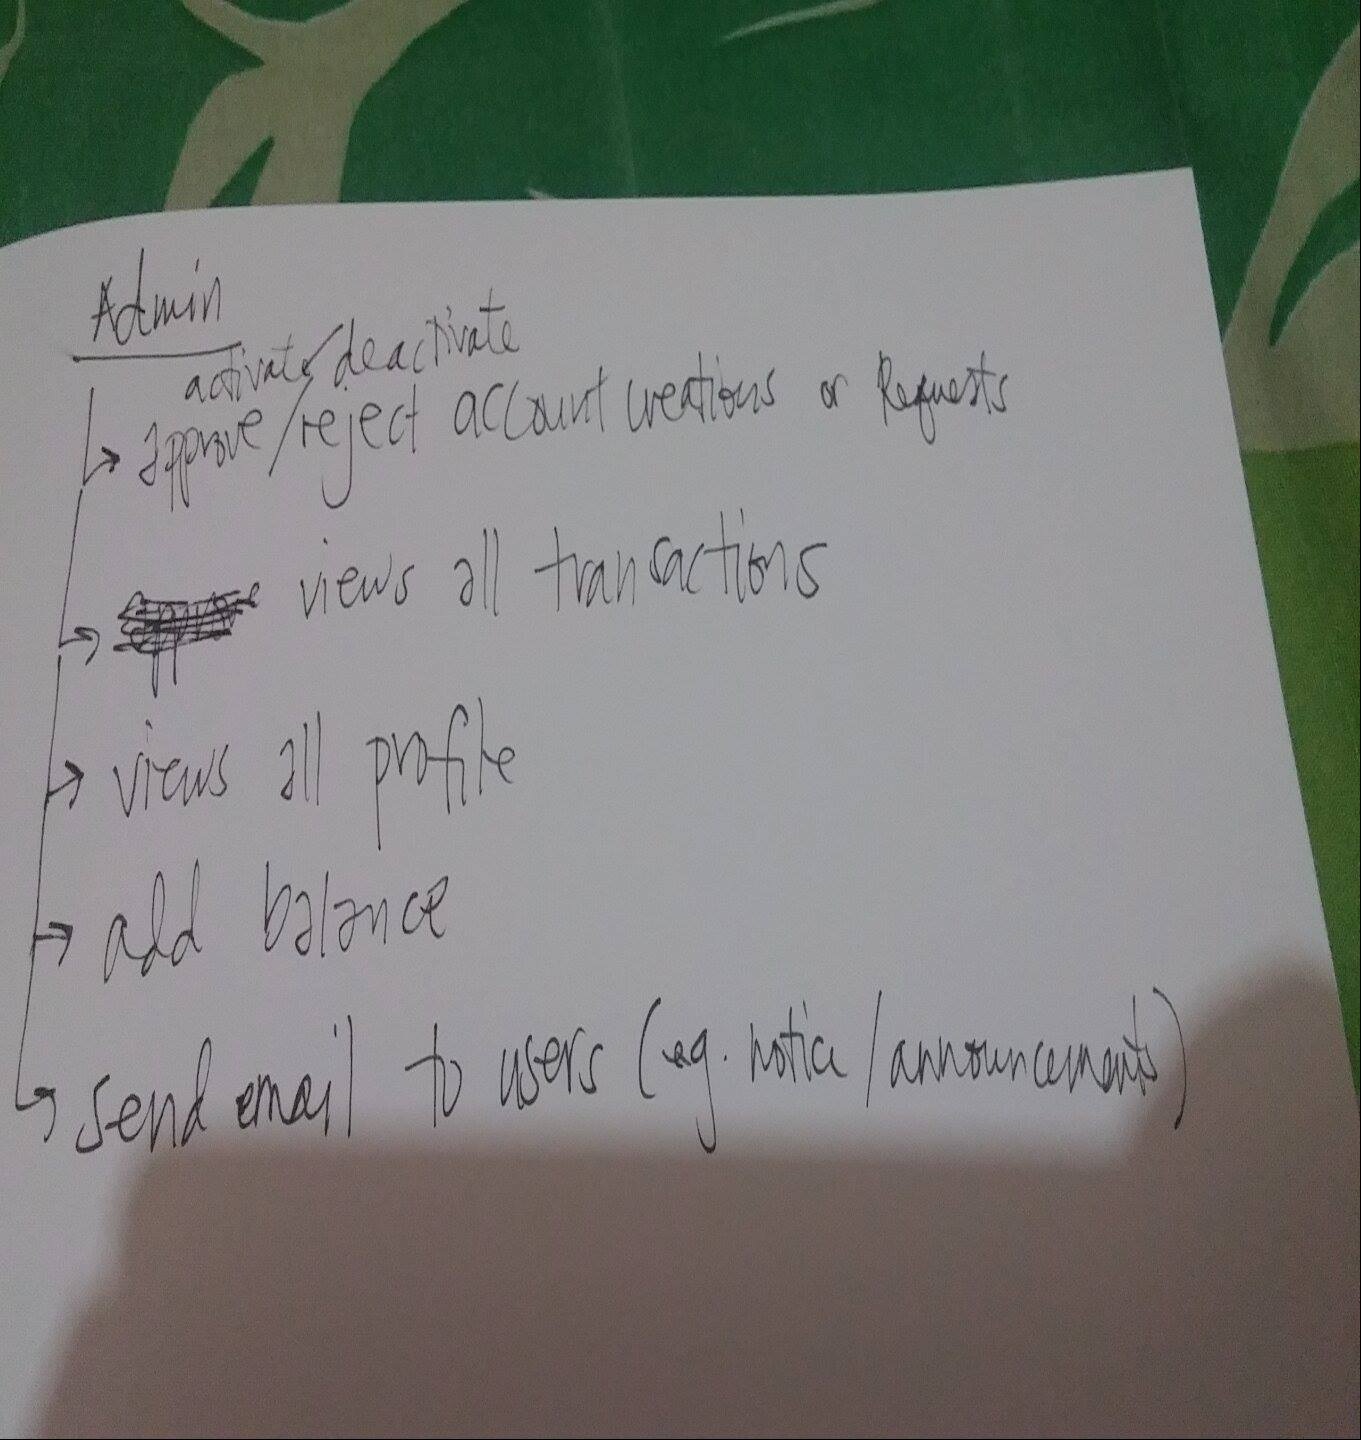 Admin
activate/deactivate
approve/reject account creations or Requests
views all transactions
views all profile
add balance
send email to users (eg. notice/announcements)